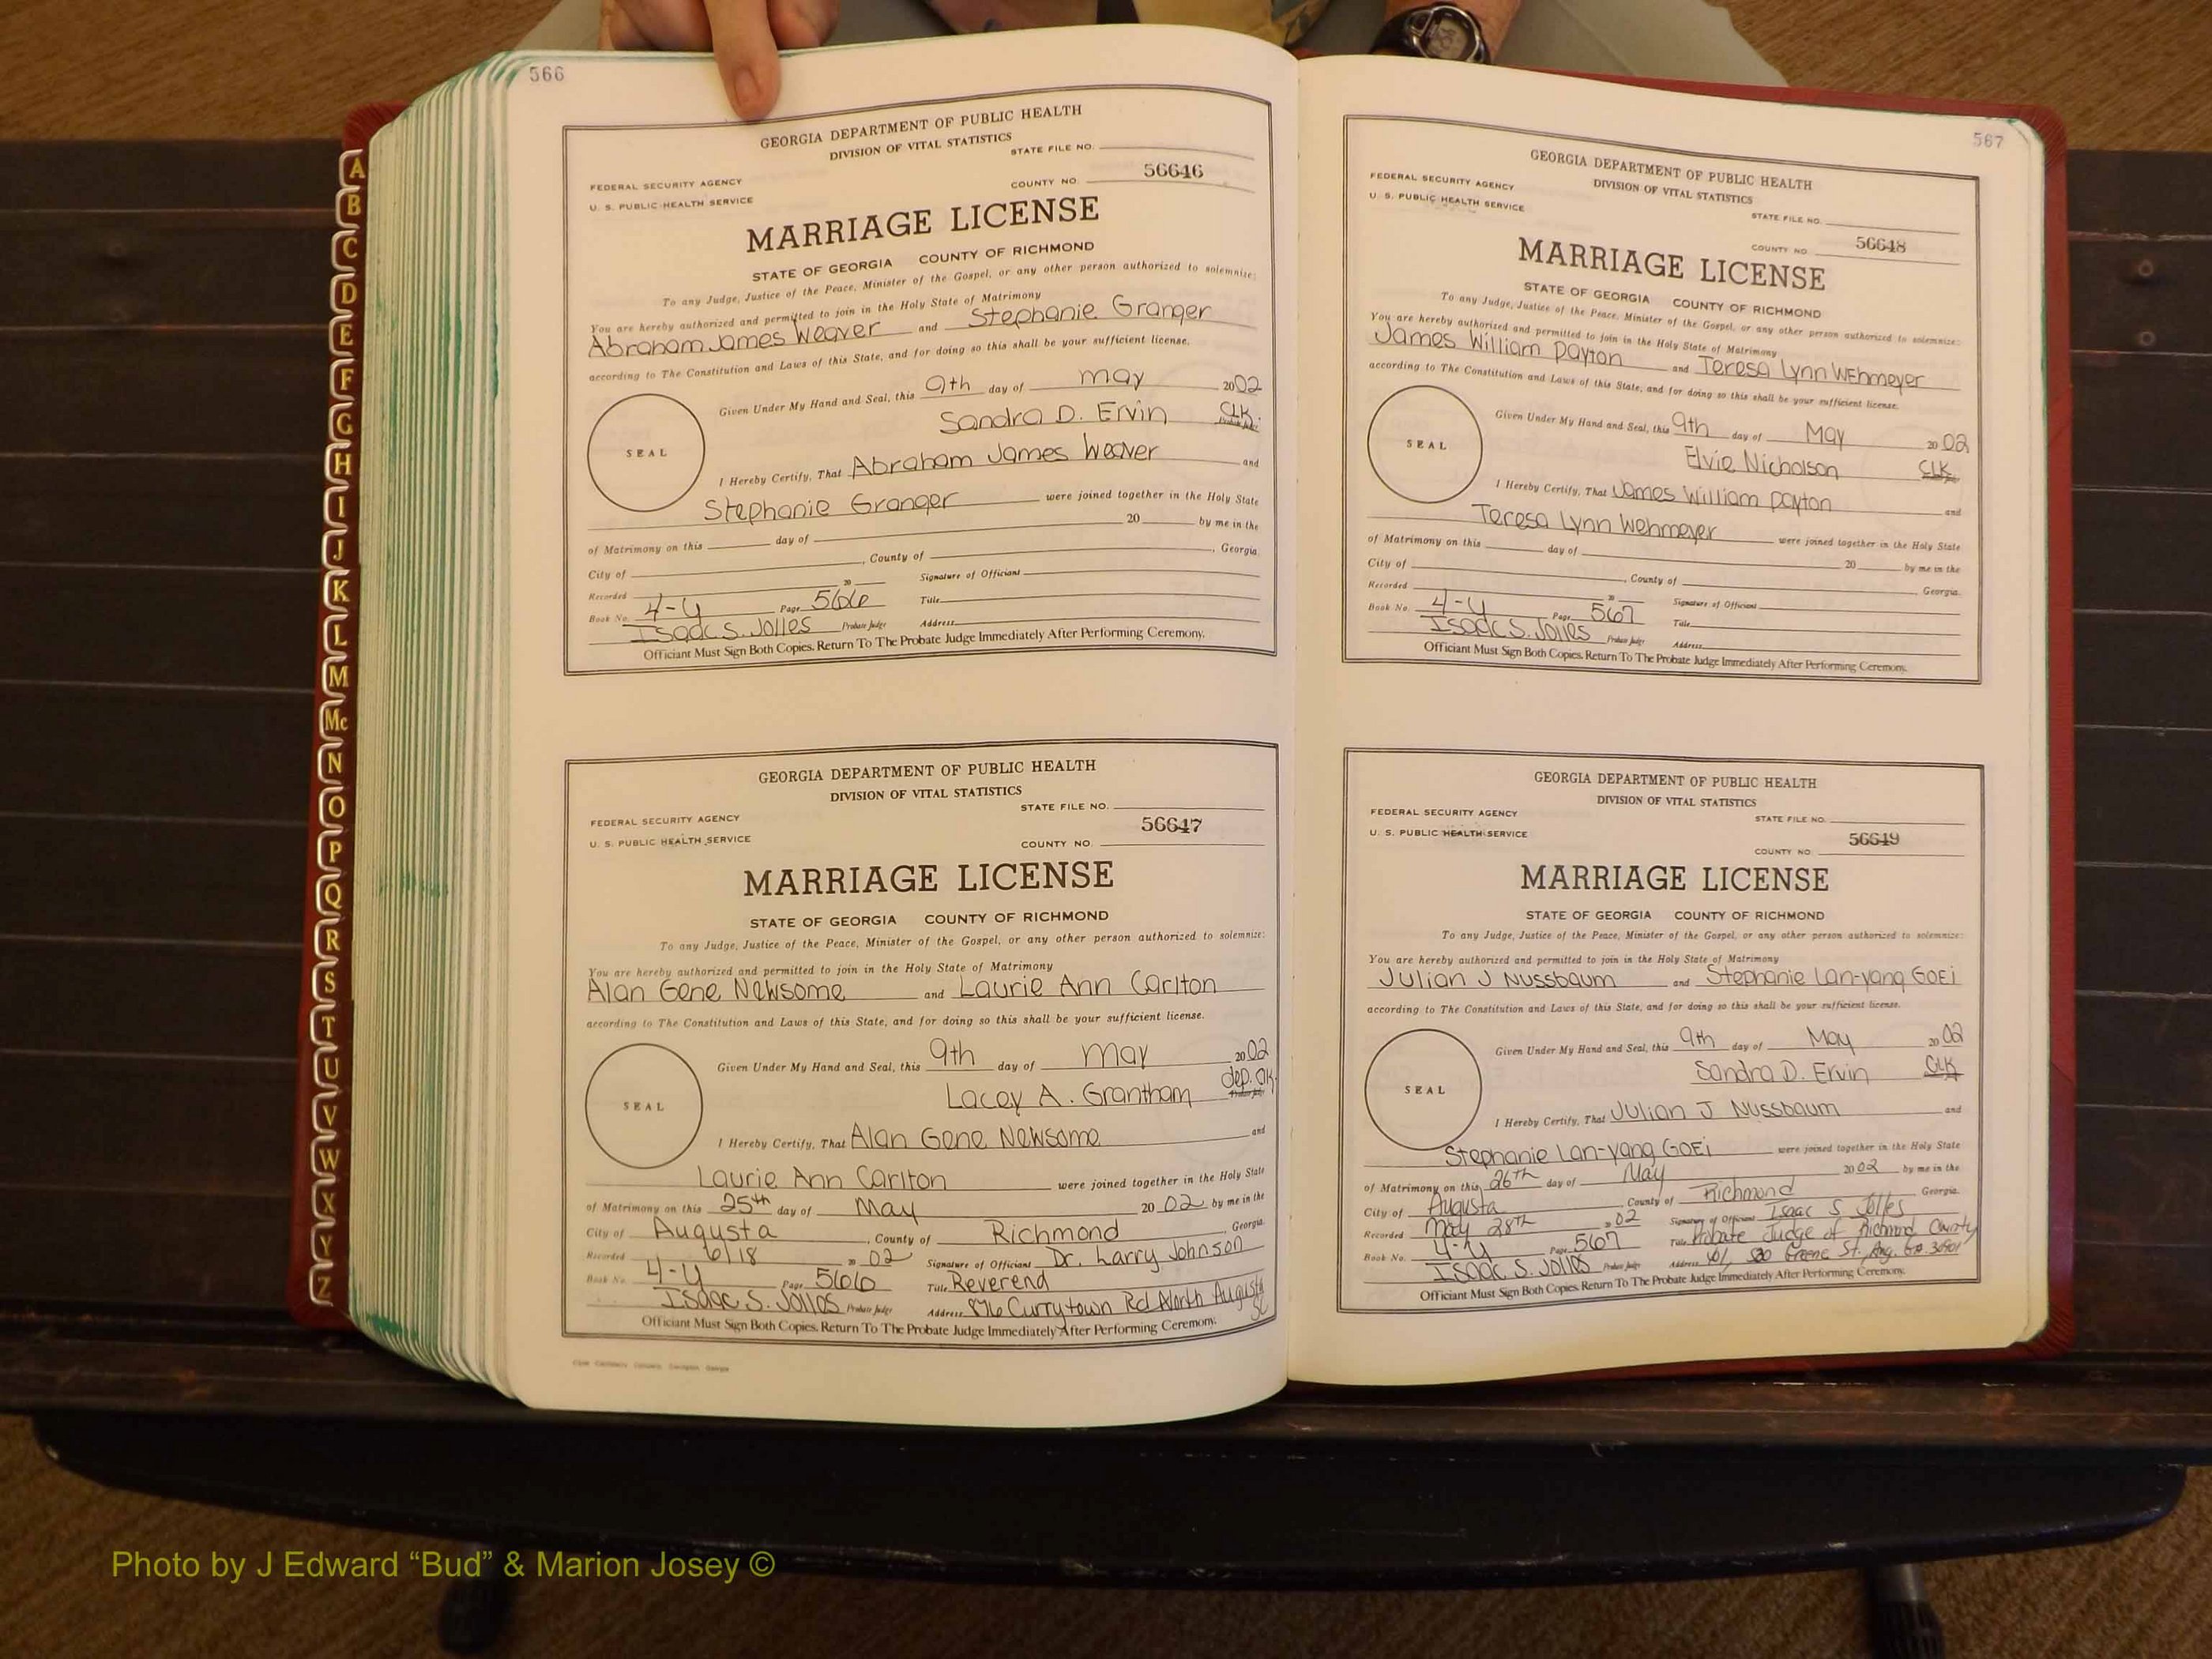 566
GEORGIA DEPARTMENT OF PUBLIC HEALTH
DIVISION OF VITAL STATISTICS
STATE FILE NO.
FEDERAL SECURITY AGENCY
U. S. PUBLIC HEALTH SERVICE
COUNTY NO. 56646
MARRIAGE LICENSE
STATE OF GEORGIA COUNTY OF RICHMOND
To any Judge, Justice of the Peace, Minister of the Gospel, or any other person authorized to solemnize:
You are hereby authorized and permitted to join in the Holy State of Matrimony
Abraham James Weaver and Stephanie Granger
according to The Constitution and Laws of this State, and for doing so this shall be your sufficient license.
Given Under My Hand and Seal, this 9th day of May 2002
Sandra D. Ervin CLK.
SEAL
I Hereby Certify, That Abraham James Weaver and
Stephanie Granger were joined together in the Holy State
of Matrimony on this day of 20 by me in the
City of , County of , Georgia
Recorded 20 Signature of Officiant
Book No. 4-Y Page 566 Title
Isaac S. Jolles Probate Judge Address
Officiant Must Sign Both Copies. Return To The Probate Judge Immediately After Performing Ceremony.
GEORGIA DEPARTMENT OF PUBLIC HEALTH
DIVISION OF VITAL STATISTICS
STATE FILE NO.
FEDERAL SECURITY AGENCY
U. S. PUBLIC HEALTH SERVICE
COUNTY NO. 56647
MARRIAGE LICENSE
STATE OF GEORGIA COUNTY OF RICHMOND
To any Judge, Justice of the Peace, Minister of the Gospel, or any other person authorized to solemnize:
You are hereby authorized and permitted to join in the Holy State of Matrimony
Alan Gene Newsome and Laurie Ann Carlton
according to The Constitution and Laws of this State, and for doing so this shall be your sufficient license.
Given Under My Hand and Seal, this 9th day of May 2002
Lacey A. Grantham dep. clk.
SEAL
I Hereby Certify, That Alan Gene Newsome and
Laurie Ann Carlton were joined together in the Holy State
of Matrimony on this 25th day of May 2002 by me in the
City of Augusta , County of Richmond , Georgia
Recorded 6/18 2002 Signature of Officiant Dr. Larry Johnson
Book No. 4-Y Page 566 Title Reverend
Isaac S. Jolles Probate Judge Address Currytown Rd North Augusta SC
Officiant Must Sign Both Copies. Return To The Probate Judge Immediately After Performing Ceremony.
567
GEORGIA DEPARTMENT OF PUBLIC HEALTH
DIVISION OF VITAL STATISTICS
STATE FILE NO.
FEDERAL SECURITY AGENCY
U. S. PUBLIC HEALTH SERVICE
COUNTY NO 56648
MARRIAGE LICENSE
STATE OF GEORGIA COUNTY OF RICHMOND
To any Judge, Justice of the Peace, Minister of the Gospel, or any other person authorized to solemnize:
You are hereby authorized and permitted to join in the Holy State of Matrimony
James William Payton and Teresa Lynn Wehmeyer
according to The Constitution and Laws of this State, and for doing so this shall be your sufficient license.
Given Under My Hand and Seal, this 9th day of May 2002
Elvie Nicholson CLK
SEAL
I Hereby Certify, That James William Payton and
Teresa Lynn Wehmeyer were joined together in the Holy State
of Matrimony on this day of 20 by me in the
City of , County of Georgia
Recorded 20 Signature of Officiant
Book No. 4-Y Page 567 Title
Isaac S. Jolles Probate Judge Address
Officiant Must Sign Both Copies. Return To The Probate Judge Immediately After Performing Ceremony.
GEORGIA DEPARTMENT OF PUBLIC HEALTH
DIVISION OF VITAL STATISTICS
STATE FILE NO.
FEDERAL SECURITY AGENCY
U. S. PUBLIC HEALTH SERVICE
COUNTY NO. 56649
MARRIAGE LICENSE
STATE OF GEORGIA COUNTY OF RICHMOND
To any Judge, Justice of the Peace, Minister of the Gospel, or any other person authorized to solemnize:
You are hereby authorized and permitted to join in the Holy State of Matrimony
Julian J Nussbaum and Stephanie Lan-yang GOEi
according to The Constitution and Laws of this State, and for doing so this shall be your sufficient license.
Given Under My Hand and Seal, this 9th day of May 2002
Sandra D. Ervin CLK
SEAL
I Hereby Certify, That Julian J Nussbaum and
Stephanie Lan-yang GOEi were joined together in the Holy State
of Matrimony on this 26TH day of May 2002 by me in the
City of Augusta , County of Richmond Georgia
Recorded May 28TH 2002 Signature of Officiant Isaac S Jolles
Book No. 4-Y Page 567 Title Probate Judge of Richmond County
Isaac S. Jolles Probate Judge Address Greene St, Aug. Ga. 30901
Officiant Must Sign Both Copies. Return To The Probate Judge Immediately After Performing Ceremony.
A
B
C
D
E
F
G
H
I
J
K
L
M
Mc
N
O
P
Q
R
S
T
U
V
W
X
Y
Z
Photo by J Edward “Bud” & Marion Josey ©